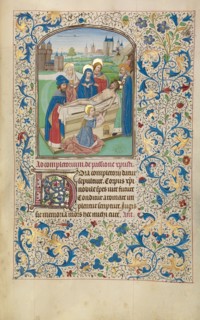 Ad completorium. de passione cristi
Hora completorii datur
sepulture. Corpus xpi
nobile spes vite future
Conditur aromate com
plentur scripture Jugis
sit memoria mors hec michi cure.